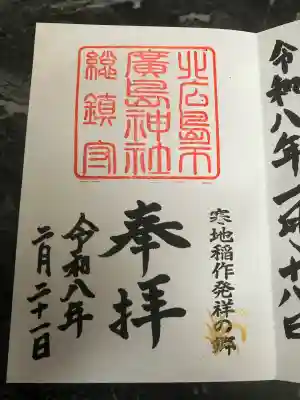 令和八年一月廿八日
寒地稲作発祥の郷
北広島市
廣島神社
総鎮守
奉拝
令和八年
二月二十一日